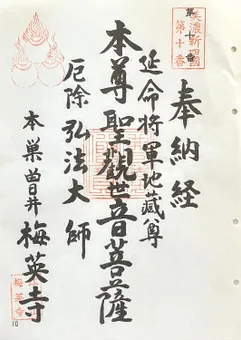 美濃新四國
第十番
奉納経
延命将軍地蔵尊
本尊聖観世音菩薩
厄除弘法大師
本巣曽井
梅英寺
梅英寺
10